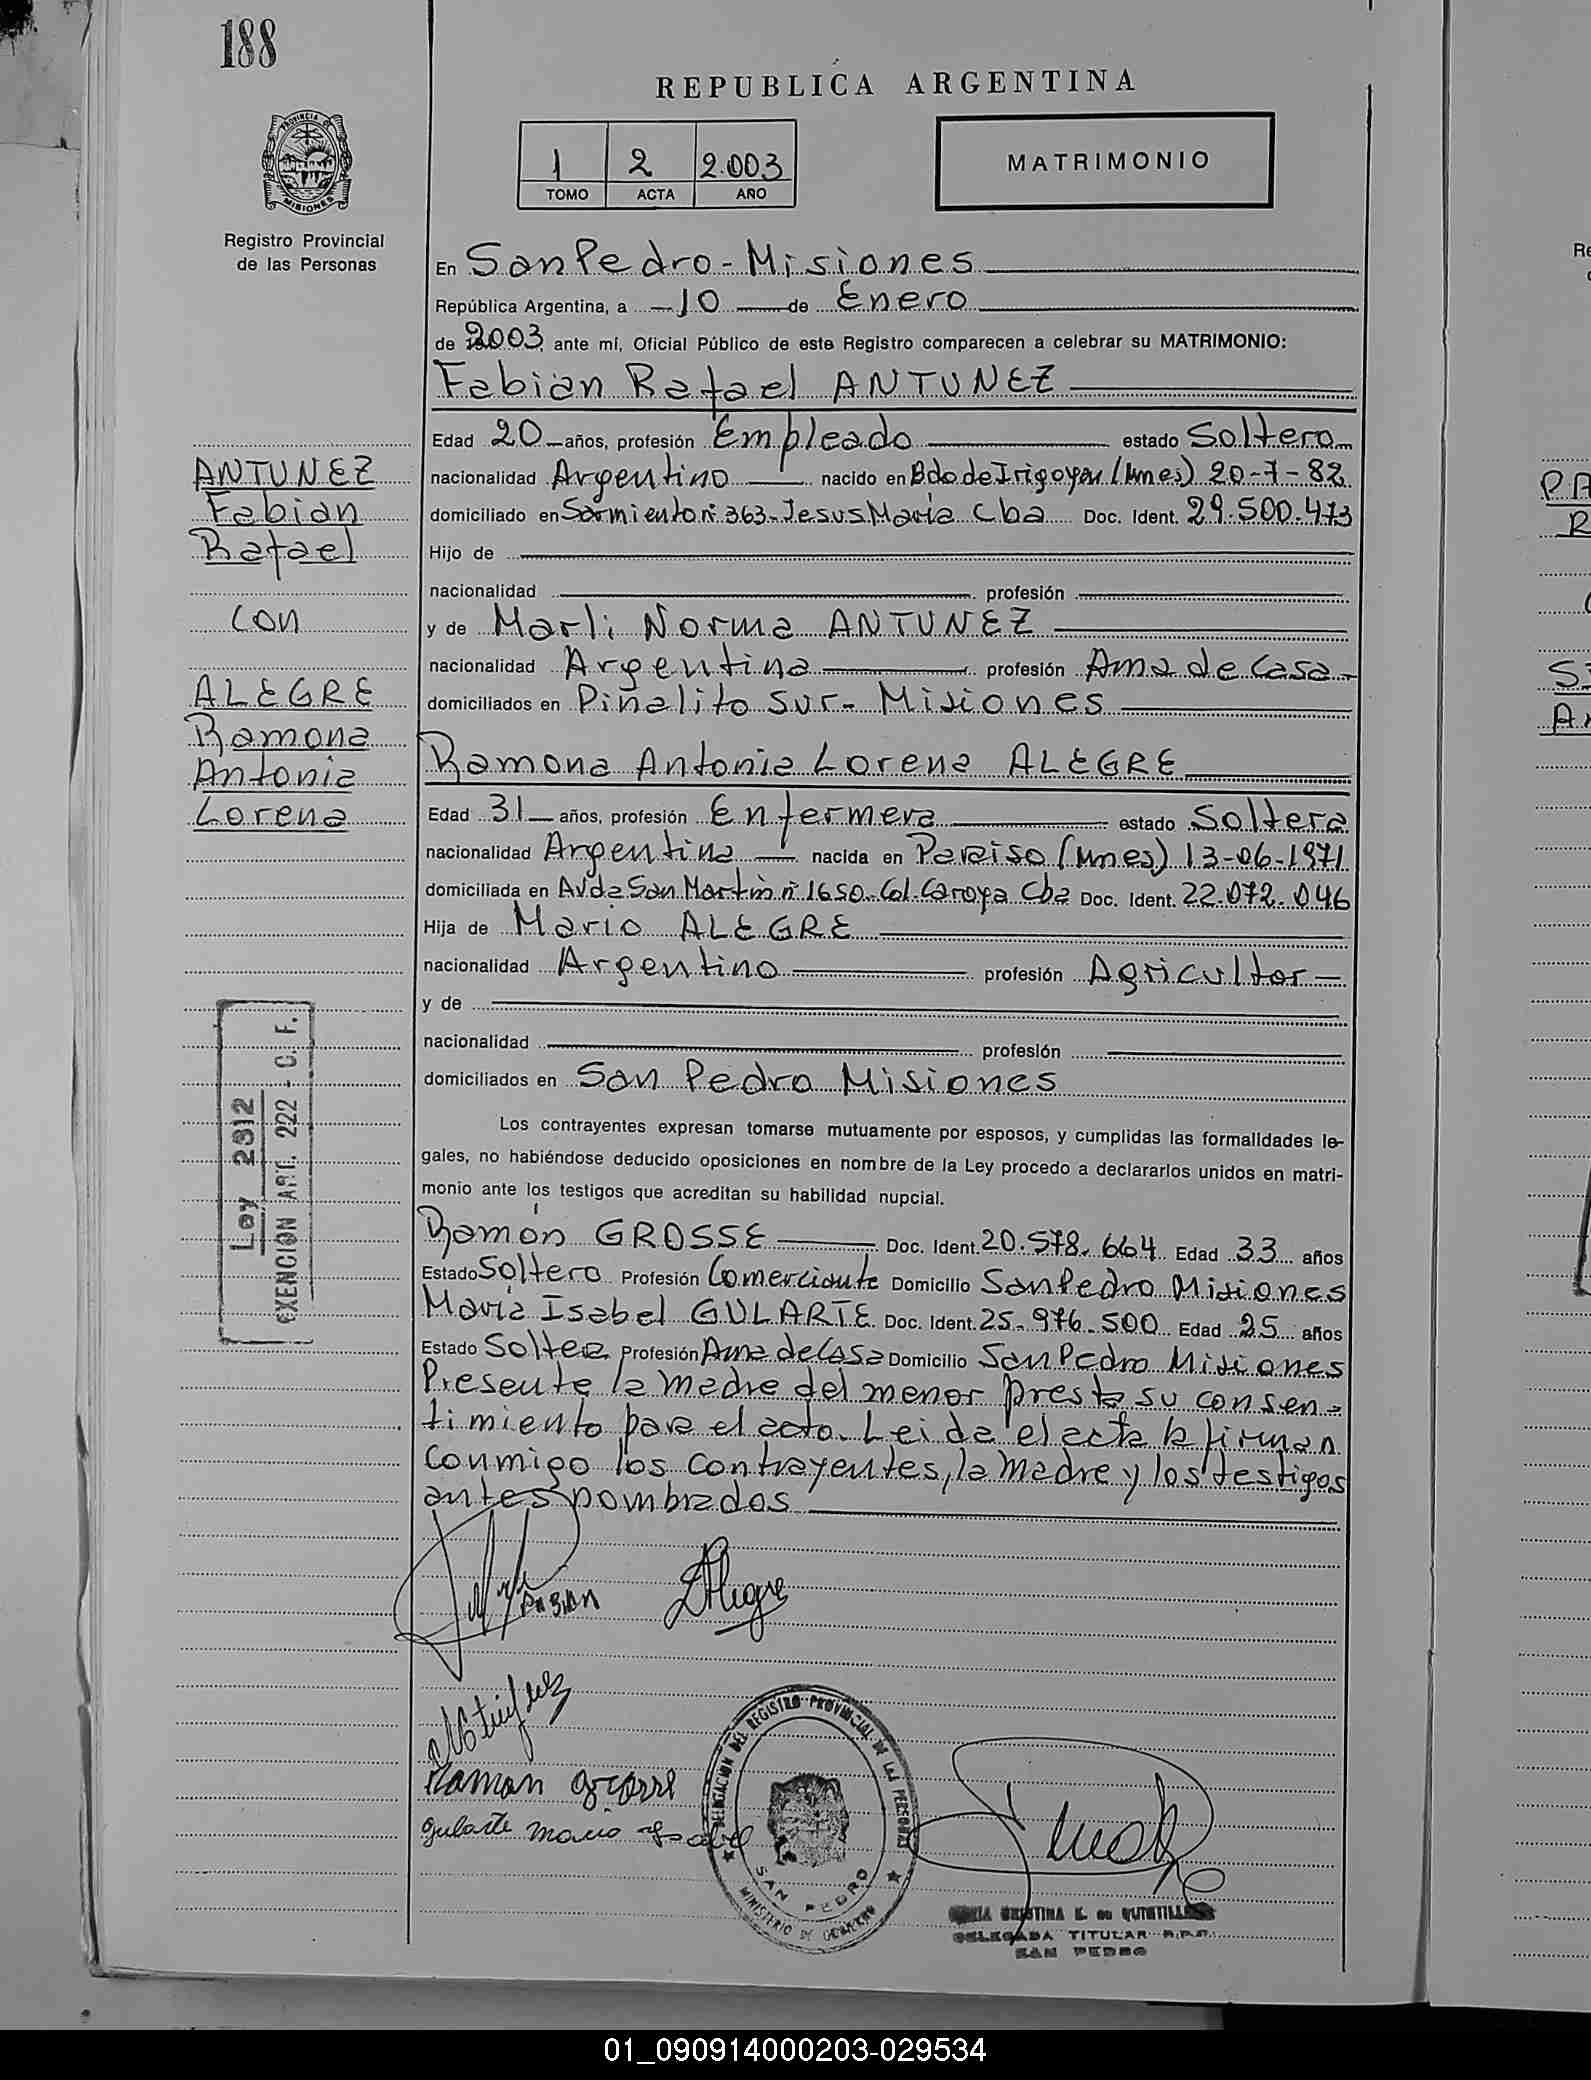 188
REPUBLICA ARGENTINA
1 2 2.003
TOMO ACTA AÑO
MATRIMONIO
PROVINCIA DE
MISIONES
Registro Provincial
de las Personas
En San Pedro - Misiones
República Argentina, a -10 de Enero
de 2003, ante mí, Oficial Público de este Registro comparecen a celebrar su MATRIMONIO:
Fabian Rafael ANTUNEZ
Edad 20 años, profesión Empleado estado Soltero
nacionalidad Argentino nacido en Bdo de Irigoyen (Mnes) 20-7-82
domiciliado en Sarmiento nº 363-Jesus María Cba Doc. Ident. 29.500.473
Hijo de
nacionalidad profesión
y de Marli Norma ANTUNEZ
nacionalidad Argentina profesión Ama de Casa-
domiciliados en Piñalito Sur- Misiones
ANTUNEZ
Fabian
Rafael
con
ALEGRE
Ramona
Antonia
Lorena
Ramona Antonia Lorena ALEGRE
Edad 31 años, profesión Enfermera estado Soltera
nacionalidad Argentina nacida en Paraiso (Mnes) 13-06-1971
domiciliada en Avda San Martín nº 1650-Col. Caroya Cba Doc. Ident. 22.072.046
Hija de Mario ALEGRE
nacionalidad Argentino profesión Agricultor-
y de
nacionalidad profesión
domiciliados en San Pedro Misiones
Ley 2312
EXENCIÓN ART. 222 - C. F.
Los contrayentes expresan tomarse mutuamente por esposos, y cumplidas las formalidades le-
gales, no habiéndose deducido oposiciones en nombre de la Ley procedo a declararlos unidos en matri-
monio ante los testigos que acreditan su habilidad nupcial.
Ramón GROSSE Doc. Ident. 20.578.664 Edad 33 años
Estado Soltero Profesión Comerciante Domicilio San Pedro Misiones
María Isabel GULARTE Doc. Ident. 25.976.500 Edad 25 años
Estado Soltera Profesión Ama de Casa Domicilio San Pedro Misiones
Presente la madre del menor presta su consen-
timiento para el acto. Leida el acta la firman
conmigo los contrayentes, la madre y los testigos
antes nombrados
FABIAN
LAlegre
Ramon Grosse
Gularte Maria Isabel
DELEGACION DEL REGISTRO PROVINCIAL DE LAS PERSONAS
SAN PEDRO
MINISTERIO DE GOBIERNO
MARIA CRISTINA E. de QUINTILLAN
DELEGADA TITULAR R.P.P.
SAN PEDRO
01_090914000203-029534